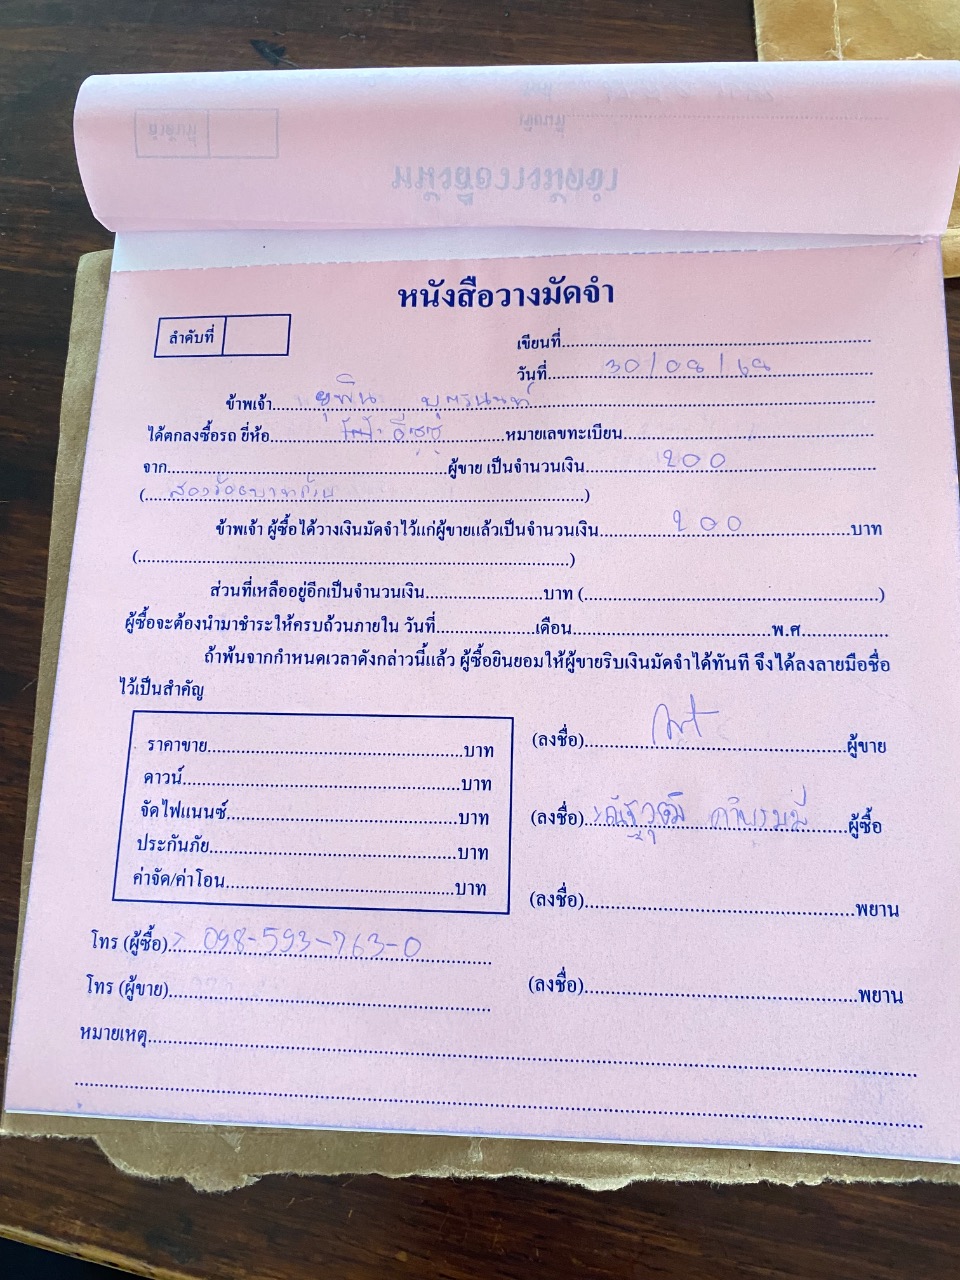 หนังสือวางมัดจำ
ลำดับที่
เขียนที่
วันที่ 30/08/68
ข้าพเจ้า ยุพิน บุตรนนท์
ได้ตกลงซื้อรถ ยี่ห้อ อีซูซุ หมายเลขทะเบียน
จาก ผู้ขาย เป็นจำนวนเงิน 200
(สองร้อยบาทถ้วน)
ข้าพเจ้า ผู้ซื้อได้วางเงินมัดจำไว้แก่ผู้ขายแล้วเป็นจำนวนเงิน 200 บาท
( )
ส่วนที่เหลืออยู่อีกเป็นจำนวนเงิน บาท ( )
ผู้ซื้อจะต้องนำมาชำระให้ครบถ้วนภายใน วันที่ เดือน พ.ศ
ถ้าพ้นจากกำหนดเวลาดังกล่าวนี้แล้ว ผู้ซื้อยินยอมให้ผู้ขายริบเงินมัดจำได้ทันที จึงได้ลงลายมือชื่อ
ไว้เป็นสำคัญ
ราคาขาย บาท
ดาวน์ บาท
จัดไฟแนนซ์ บาท
ประกันภัย บาท
ค่าจัด/ค่าโอน บาท
(ลงชื่อ) ผู้ขาย
(ลงชื่อ) ณัฐวุฒิ ผู้ซื้อ
(ลงชื่อ) พยาน
(ลงชื่อ) พยาน
โทร (ผู้ซื้อ) 098-593-763-0
โทร (ผู้ขาย)
หมายเหตุ